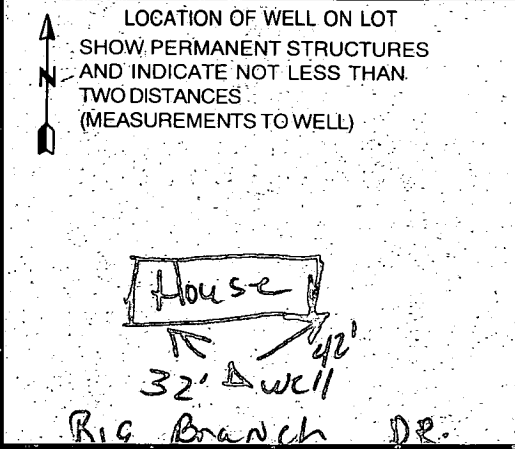 LOCATION OF WELL ON LOT
SHOW PERMANENT STRUCTURES
N AND INDICATE NOT LESS THAN
TWO DISTANCES
(MEASUREMENTS TO WELL)
House
42'
32' well
Big Branch DR.